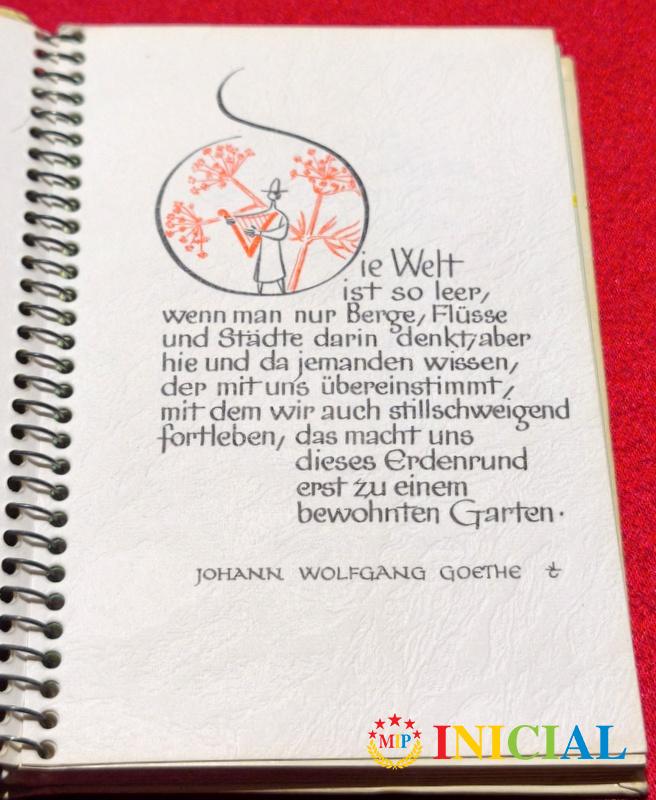 Die Welt
ist so leer,
wenn man nur Berge, Flüsse
und Städte darin denkt, aber
hie und da jemanden wissen,
der mit uns übereinstimmt,
mit dem wir auch stillschweigend
fortleben, das macht uns
dieses Erdenrund
erst zu einem
bewohnten Garten.
JOHANN WOLFGANG GOETHE
MIP INICIAL